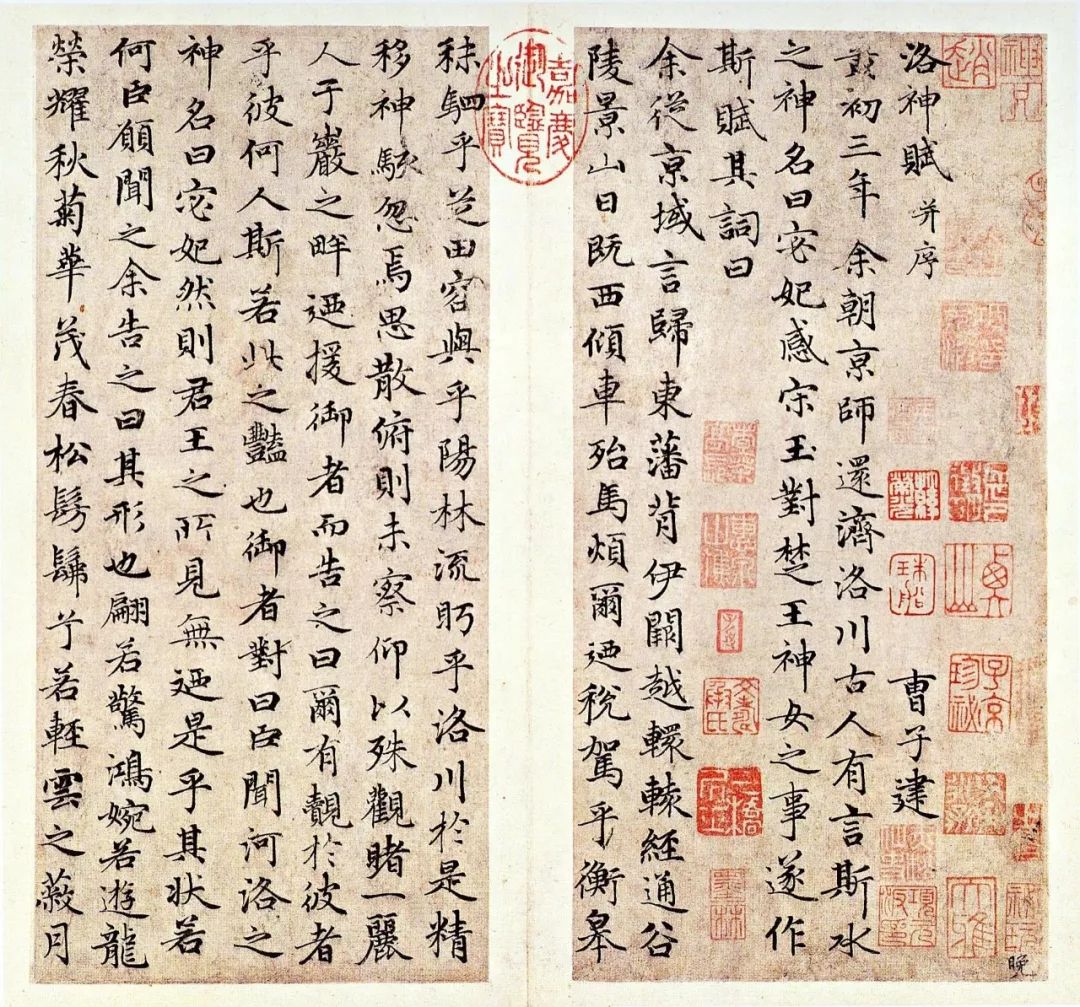 洛神賦 并序
曹子建
黃初三年 余朝京師還濟洛川古人有言斯水
之神名曰宓妃感宋玉對楚王神女之事遂作
斯賦其詞曰
余從京域言歸東藩背伊闕越轘轅經通谷
陵景山日既西傾車殆馬煩爾迺稅駕乎衡皋
秣駟乎芝田容與乎陽林流眄乎洛川於是精
移神駭忽焉思散俯則未察仰以殊觀睹一麗
人于巖之畔迺援御者而告之曰爾有覿於彼者
乎彼何人斯若此之豔也御者對曰臣聞河洛之
神名曰宓妃然則君王之所見無迺是乎其狀若
何臣願聞之余告之曰其形也翩若驚鴻婉若遊龍
榮耀秋菊華茂春松髣髴兮若輕雲之蔽月
嘉慶御覽之寶
子京珍祕
晚